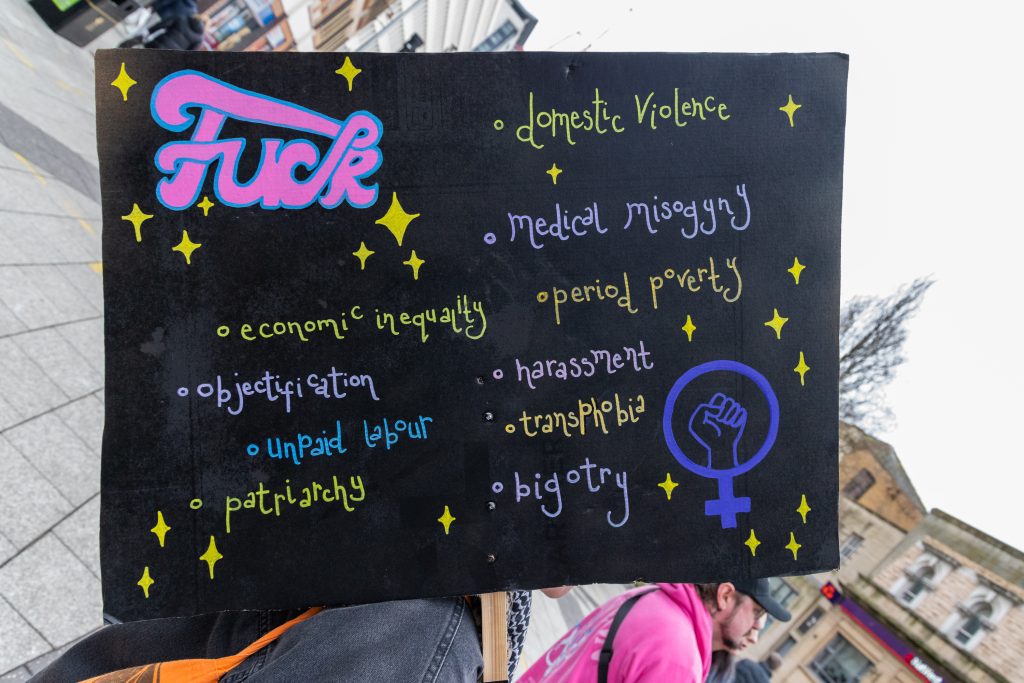 Fuck
domestic violence
medical misogyny
period poverty
economic inequality
harassment
objectification
transphobia
unpaid labour
bigotry
patriarchy